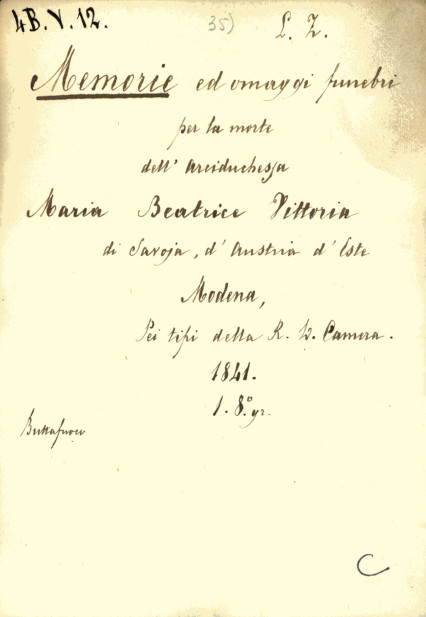 4B. V. 12. 35) L. Z.
Memorie ed omaggi funebri
per la morte
dell' Arciduchessa
Maria Beatrice Vittoria
di Savoja, d' Austria d' Este
Modena,
Pei tipi della R. D. Camera.
1841.
1. 8.° gr.
Buttafuoco
C